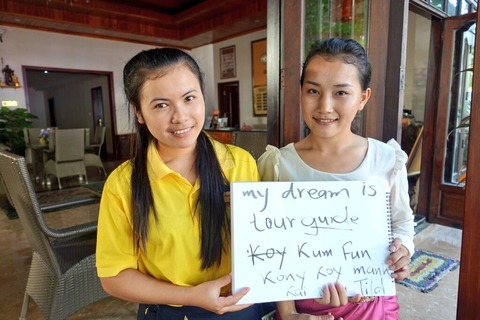 my dream is
tour guide
Koy Kum Fun
Kony Koy mann
Kai Tild